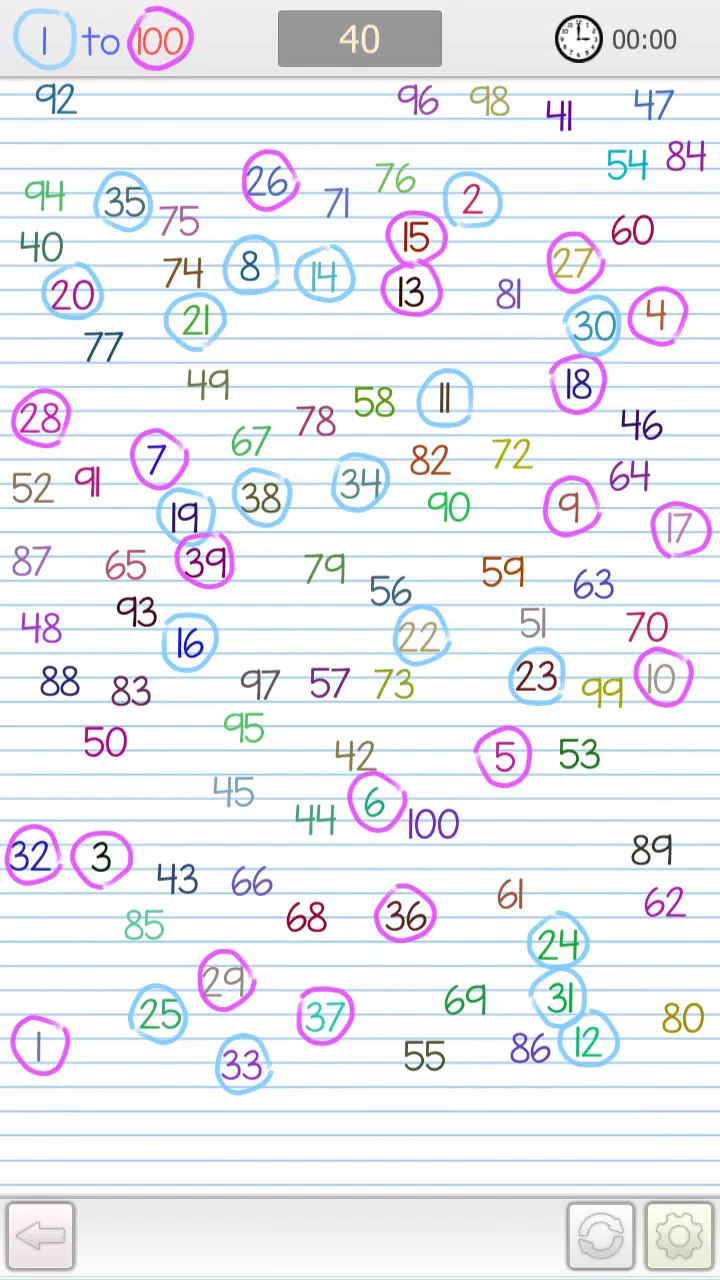 1 to 100 40 00:00
92 96 98 41 47
54 84
94 35 75 26 71 76 2
40 15 60
20 74 8 14 13 81 27
21 30 4
77
49 58 11 18
28 78 46
7 67 82 72
52 91 38 34 64
19 90 9 17
87 65 39 79 59
56 63
48 93 16 22 51 70
88 83 97 57 73 23 99 10
50 95
42 5 53
45 44 6 100
32 3 43 66 89
85 68 36 61 62
24
29
25 37 69 31 80
1 33 55 86 12